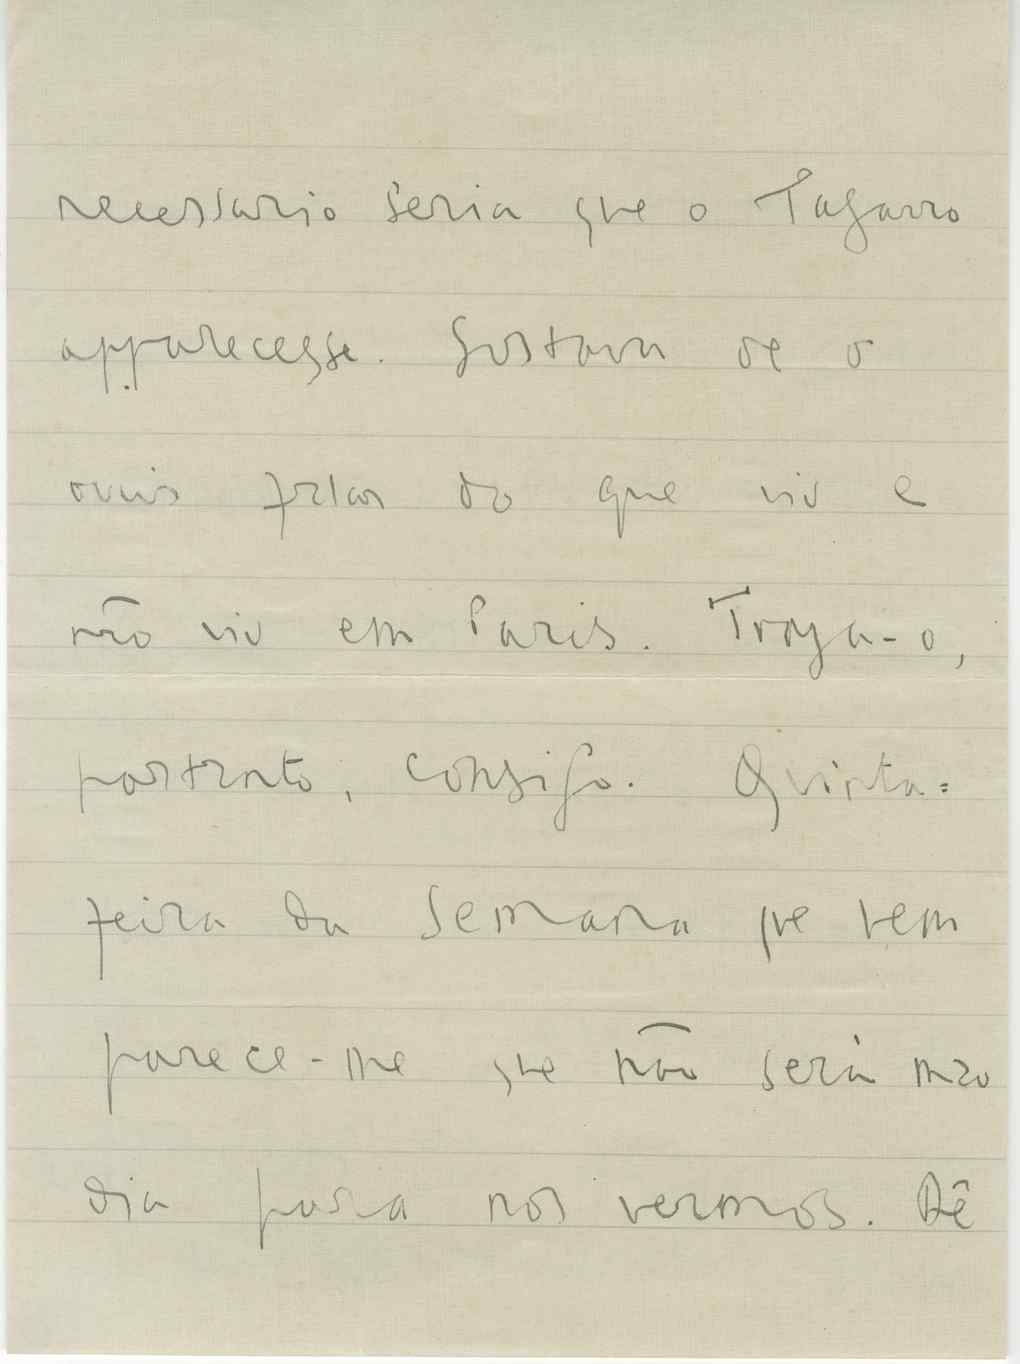 necessario seria que o Tagarro
apparecesse. Gostava de o
ouvir fallar do que viu e
não viu em Paris. Traga-o,
portanto, consigo. Quinta=
feira da semana que vem
parece-me que não será mao
dia para nos vermos. Dê